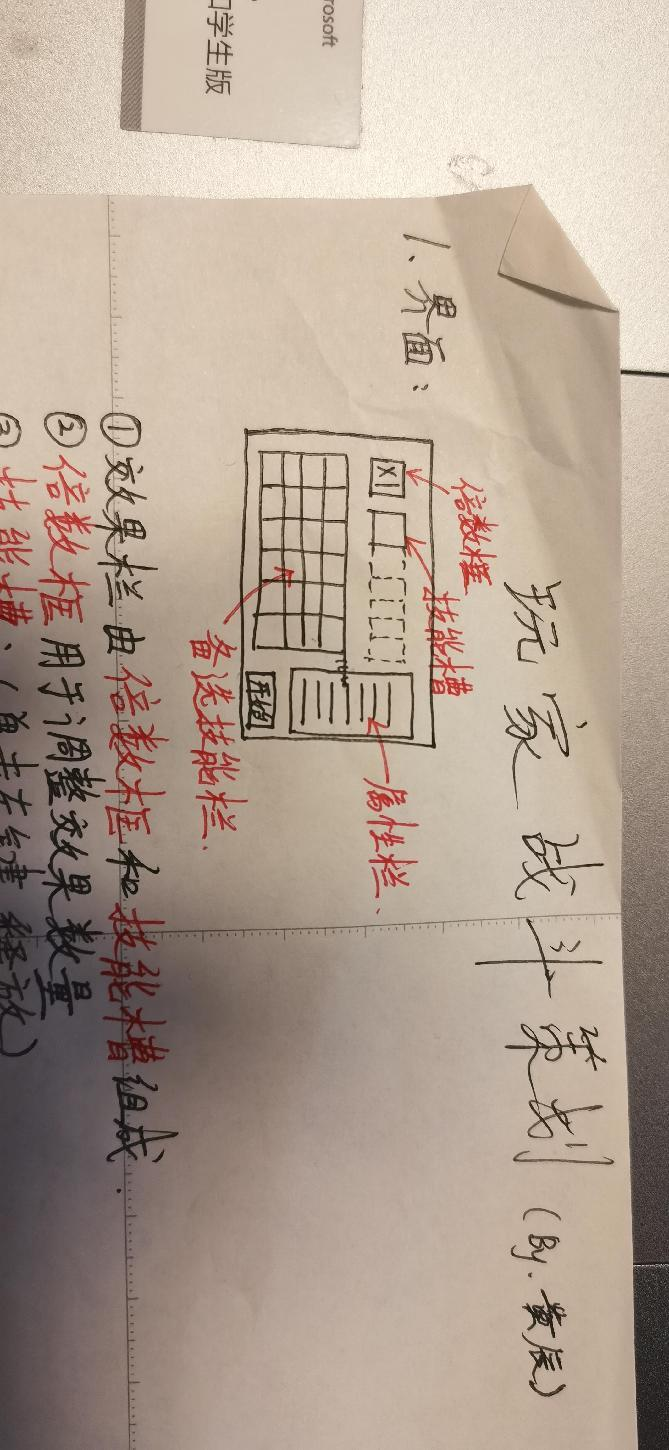 rosoft
学生版
玩家战斗策划(By.黄辰)
1、界面:
倍数框
技能槽
X1
属性栏.
备选技能栏.
①效果栏由倍数框和技能槽组成.
②倍数框用于调整效果数量
③技能槽、(单击左键释放)